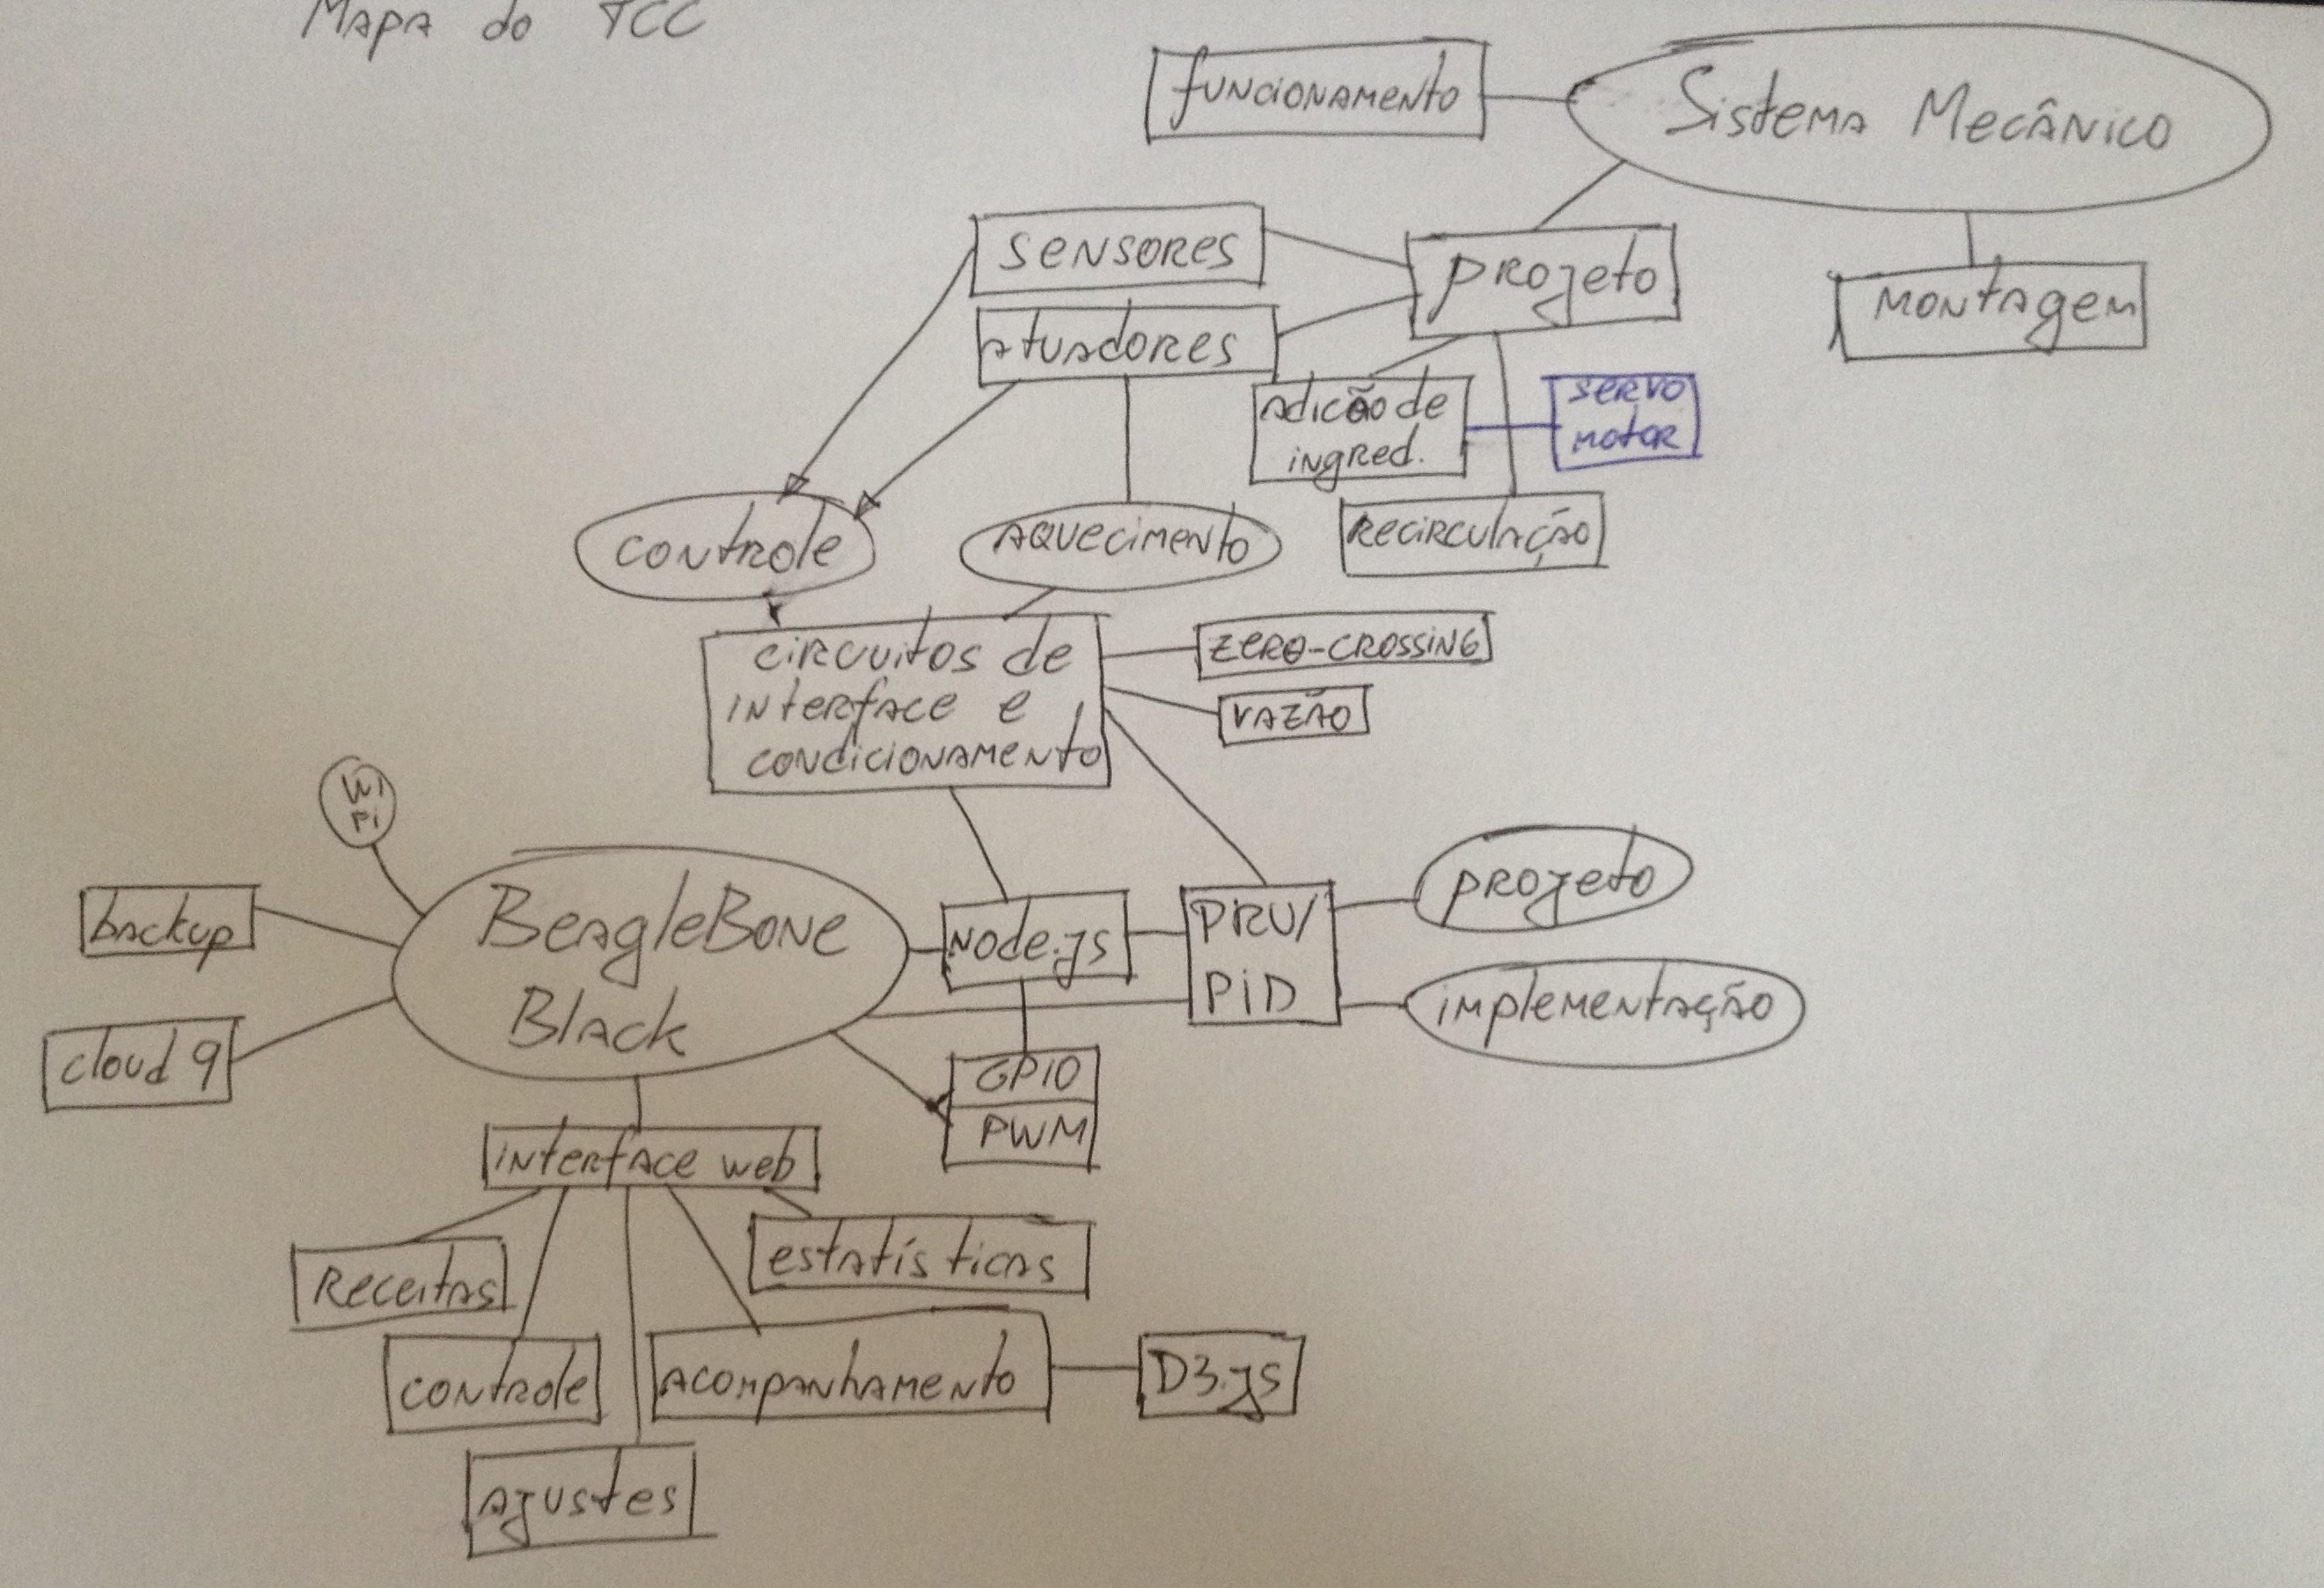 Mapa do TCC
funcionamento
Sistema Mecânico
sensores
projeto
montagem
atuadores
adicão de
ingred.
servo
motor
controle
aquecimento
recirculação
circuitos de
interface e
condicionamento
zero-crossing
vazão
Wi
Fi
backup
BeagleBone
Black
cloud 9
Node.js
PRU/
PiD
projeto
implementação
GPIO
PWM
interface web
Receitas
estatísticas
controle
acompanhamento
D3.js
ajustes